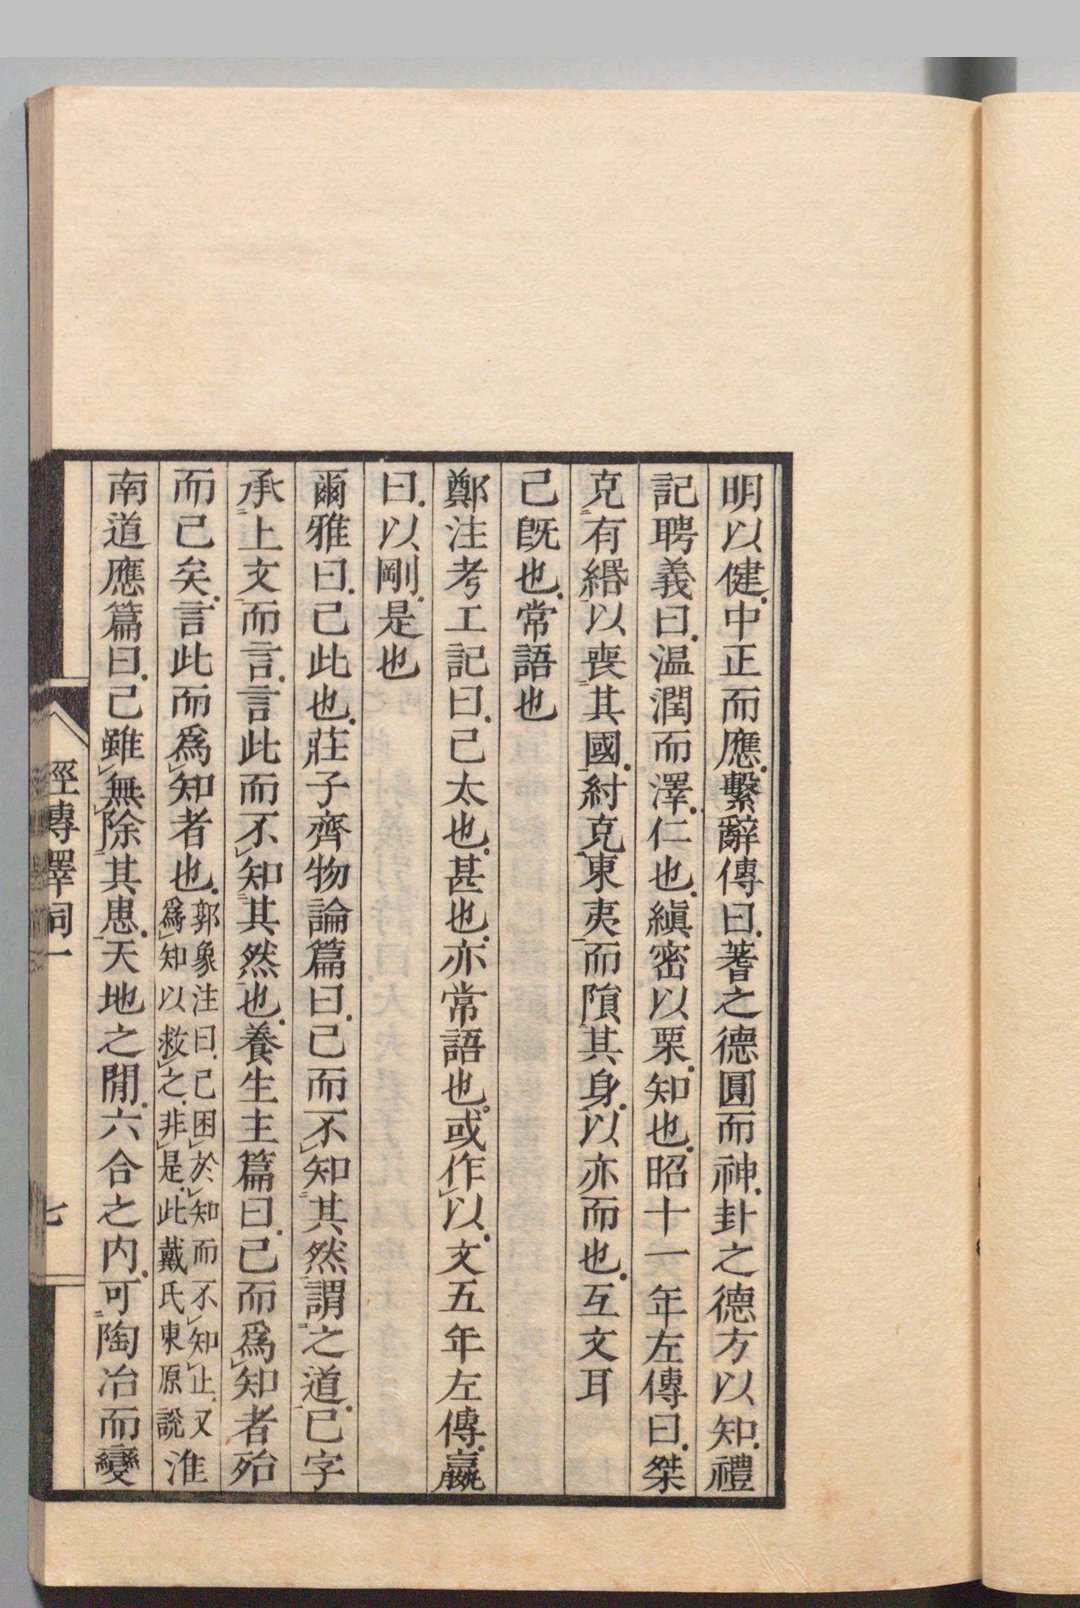 明以健中正而應繫辭傳曰蓍之德圓而神卦之德方以知禮
記聘義曰温潤而澤仁也縝密以栗知也昭十一年左傳曰桀
克有緡以喪其國紂克東夷而隕其身以亦而也互文耳
已旣也常語也
鄭注考工記曰已太也甚也亦常語也或作以文五年左傳嬴
曰以剛是也
爾雅曰已此也莊子齊物論篇曰已而不知其然謂之道已字
承上文而言言此而不知其然也養生主篇曰已而爲知者殆
而已矣言此而爲知者也郭象注曰已困於知而不知止又爲知以救之非是此戴氏東原說淮
南道應篇曰已雖無除其患天地之閒六合之内可陶冶而變
經傳釋詞一
七